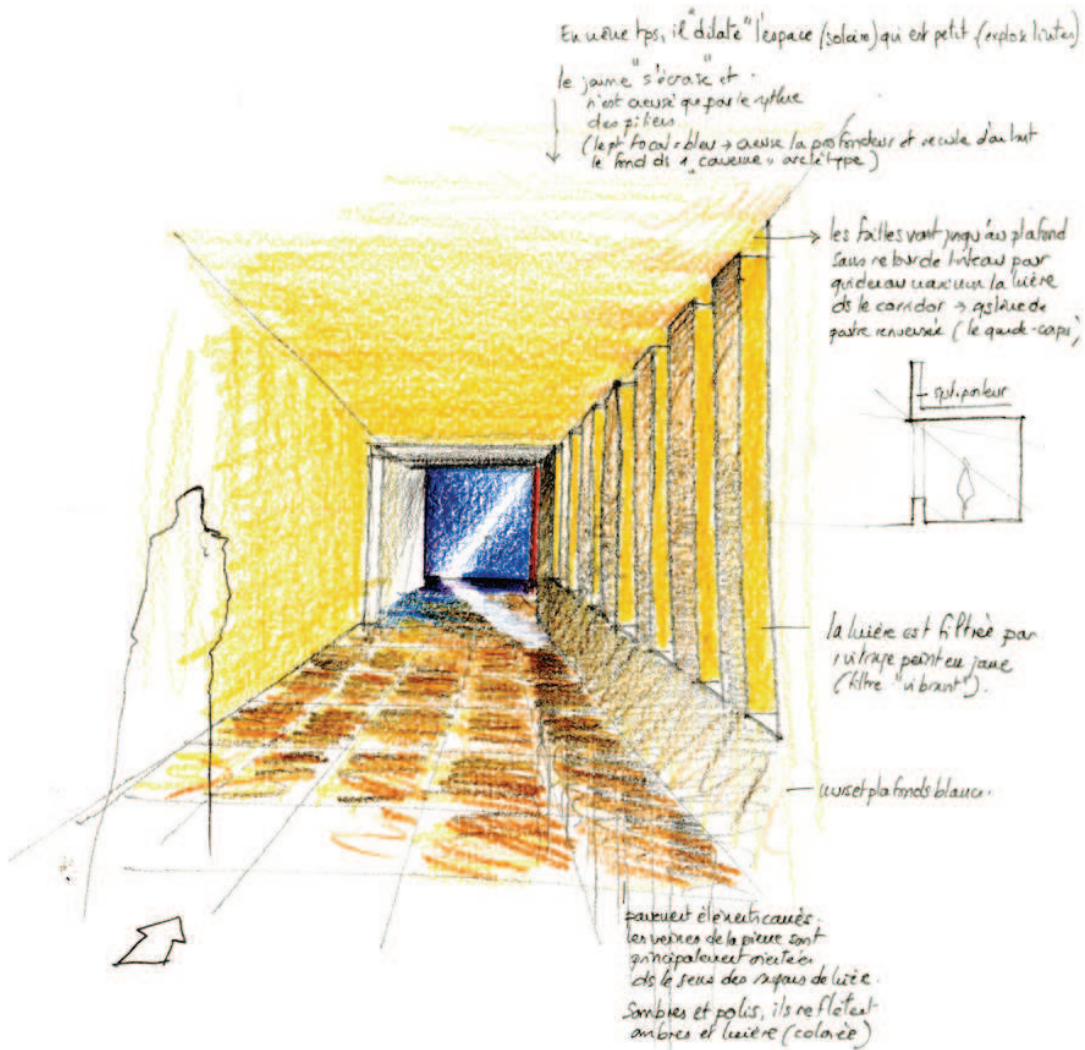 En même tps, il "dilate" l'espace (solaire) qui est petit (explose limites)
le jaune "s'écrase" et
n'est creusé que par le rythme
des piliers
(le pt focal = bleu → creuse la profondeur et recule d'autant
le fond ds 1 "caverne" archétype)
les failles vont jusqu'au plafond
sans retour de linteau pour
guider au maximum la luière
ds le corridor → système de
poutre renversée (le garde-corps)
syst. porteur
la luière est filtrée par
1 vitrage peint en jaune
(filtre "vibrant").
murs et plafonds blancs.
pavement éléments carrés.
les veines de la pierre sont
principalement orientées
ds le sens des rayons de luière.
Sombres et polis, ils reflètent
ombres et luière (colorée)